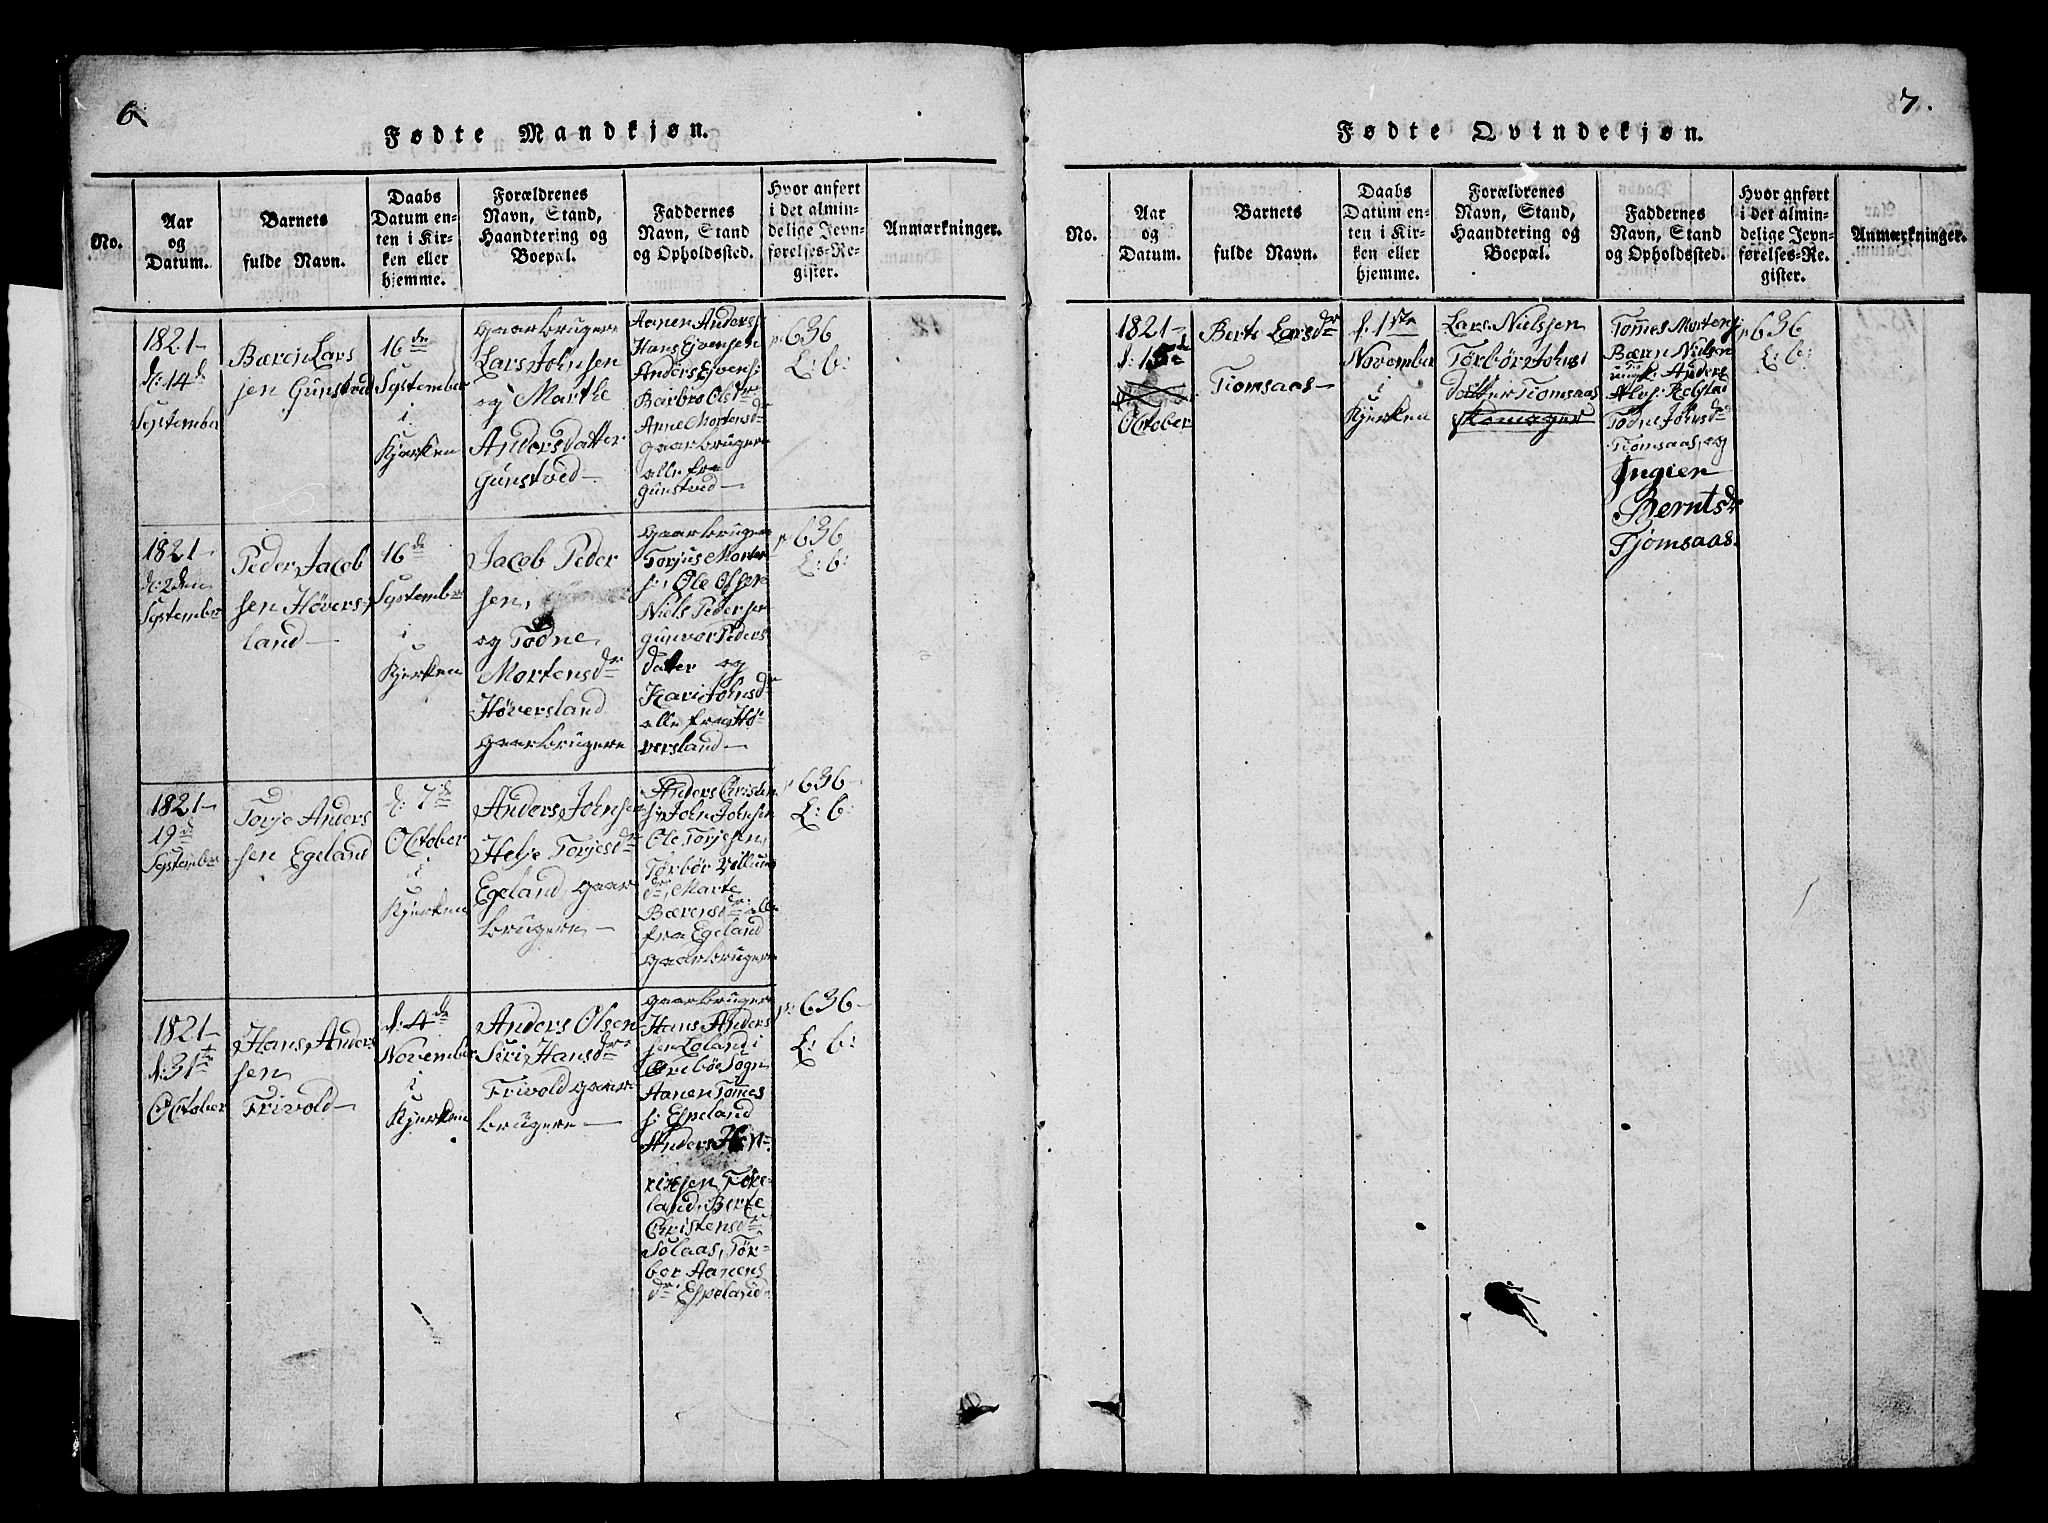 6
Fødte Mandkjøn.
No.
Aar
og
Datum.
Barnets
fulde Navn.
Daabs
Datum en-
ten i Kir-
ken eller
hjemme.
Forældrenes
Navn, Stand,
Haandtering og
Boepæl.
Faddernes
Navn, Stand
og Opholdssted.
Hvor anført
i det almin-
delige Jevn-
førelses-Re-
gister.
Anmærkninger.
1821-
d: 14 d
September
Lars
sen Gunstved
16 de
September
i
Kjerken
gaarbrugere
Lars Johnsen
og Marthe
Andersdatter
Gunstved-
Aanen Anders
Hans Evensen
Anders Evens:
Barbro Olsdr
Anne Mortensd
gaarbrugere
alle fra
Gunstved-
p: 636
L: b:
1821-
d: 2den
September
Peder Jacob
sen Høvers-
land-
16 de
September
i
Kjerken
Jacob Peder
sen,
og Todne
Mortensdr
Høversland
gaarbrugere
gaarbrugere
Torjus Morten
s:, Ole Olsen
Niels Pedersen
gunvor Peders
dater og
Kari Johnsdr
alle fra Hø-
versland-
p: 636
L: b:
1821-
19 d
September
Torje Anders
sen Egeland
d: 7 de
October
i
Kjerken
Anders Johnsen
Helje Torjesdr
Egeland, gaar
brugere-
Anders Christen
s: John Johnsen
Ole Torjesen,
Tørbør Villums
dr, Marte
Bærensdr alle
fra Egeland
gaarbrugere
p: 636-
L: b:
1821-
d: 31te
October
Hans Anders
sen
Frivold-
d: 4 de
November
i
Kjerken
Anders Olsen
Siri Hansdr
Frivold gaar-
brugere-
gaarbrugere
Hans Anders
sen Eoland i
Sogn
Aanen Tomes
s: Espeland
Anders Hen-
richsen
land, Berte
Christensdr
Solaas, Tør-
bor Aanens
dr: Espeland
p: 636-
L: b:
7.
Fødte Qvindekjøn.
No.
Aar
og
Datum.
Barnets
fulde Navn.
Daabs
Datum en-
ten i Kir-
ken eller
hjemme.
Forældrenes
Navn, Stand,
Haandtering og
Boepæl.
Faddernes
Navn, Stand
og Opholdssted.
Hvor anført
i det almin-
delige Jevn-
førelses-Re-
gister.
Anmærkninger.
1821-
d: 15 d
October
Berte Larsdr
Tiomsaas-
d. 1ste
November
i
Kjerken
Lars Nielssen
Tørbør Johns
datter Tiomsaas
Tomes Mortens
Bærn Nielsen
ungk: Anders
Todne Johnsdr
Tiomsaas, og
Ingier
Berntsdr
Tjomsaas.
p: 636
L: b: